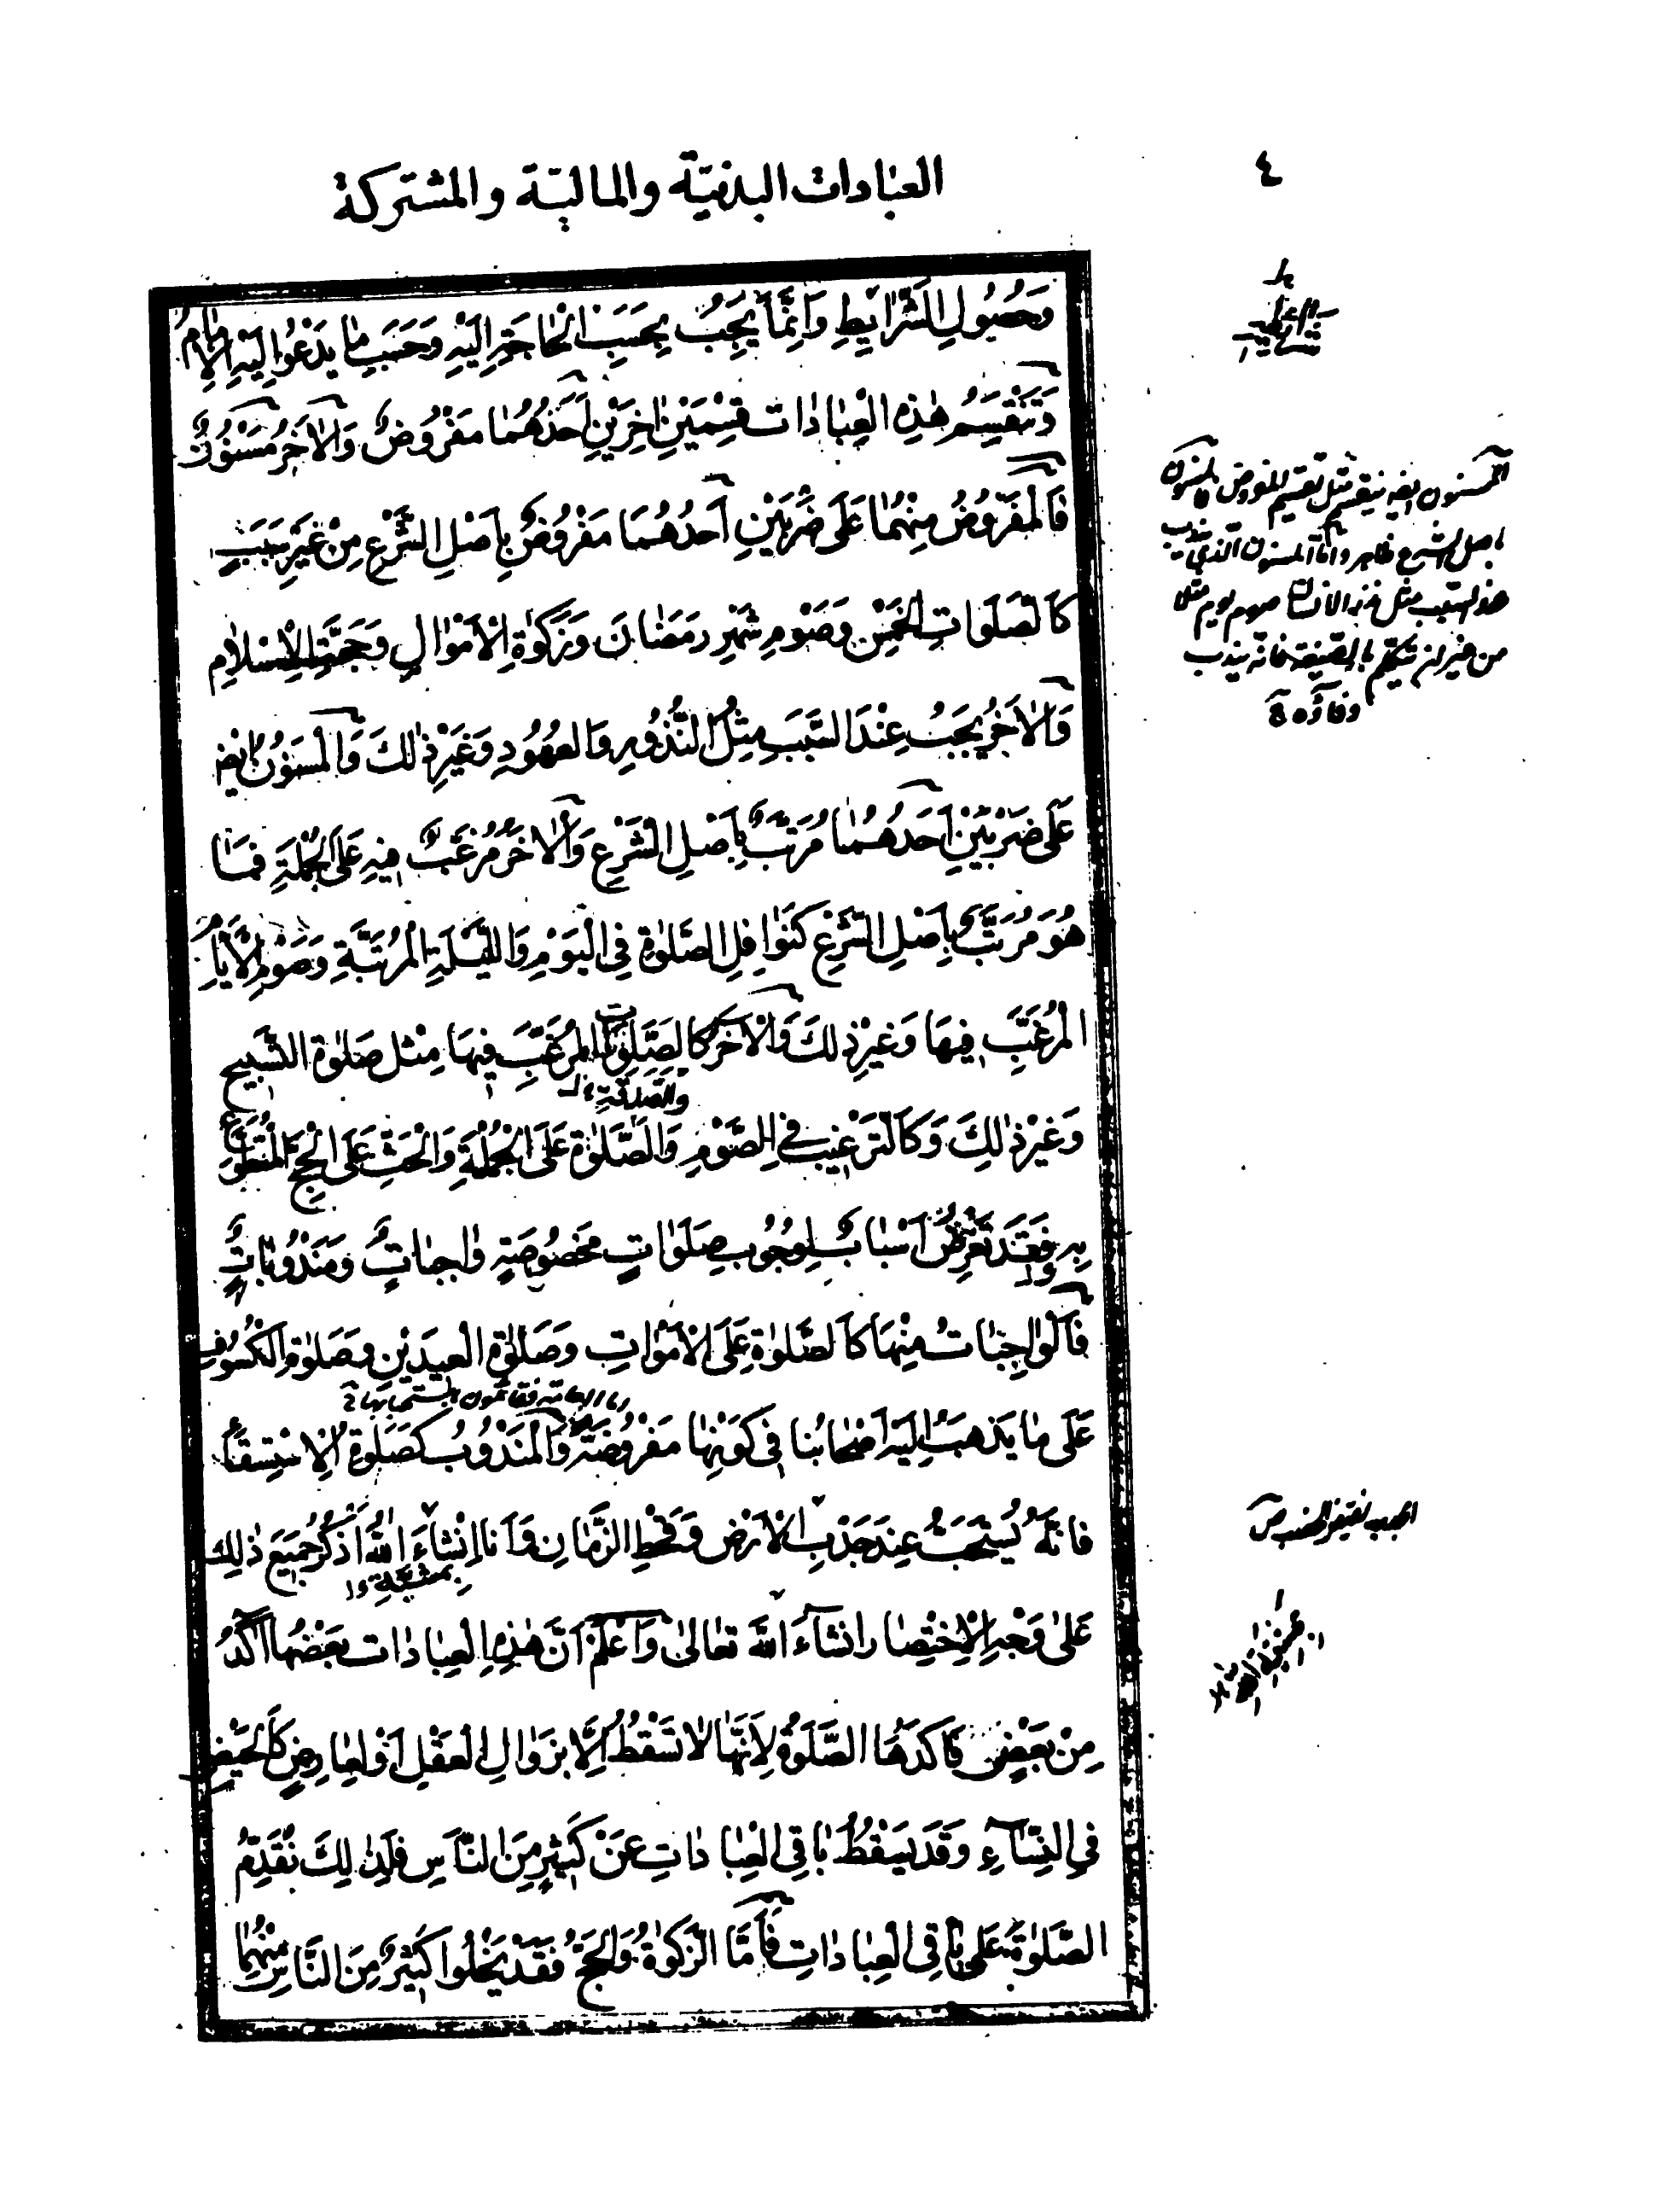 ٤
العبادات البدنية والمالية والمشتركة
وَحُصُولِ الشَّرٰايِطِ وَاِنَّمٰا يَجِبُ بِحَسَبِ الْحٰاجَةِ اِلَيْهِ وَحَسَبِ مٰا يَدْعُوا اِلَيْهِ الْاِمٰامُ
وَتَنْقَسِمُ هٰذِهِ الْعِبٰادٰات قِسْمَيْنِ اٰخَرَيْنِ اَحَدُهُمٰا مَفْرُوضٌ وَالْاٰخَرُ مَسْنُونٌ
فَالْمَفْرُوضُ مِنْهُمٰا عَلىٰ ضَرْبَيْنِ اَحَدُهُمٰا مَفْرُوضٌ بِاَصْلِ الشَّرْعِ مِنْ غَيْرِ سَبَبٍ
كَالصَّلَوٰاتِ الْخَمْسِ وَصَوْمِ شَهْرِ رَمَضٰانَ وَزَكٰوةِ الْاَمْوٰالِ وَحَجَّةِ الْاِسْلاٰمِ
وَالْاٰخَرُ يَجِبُ عِنْدَ السَّبَبِ مِثْلُ النُّذُورِ وَالعهُودِ وَغَيْرِ ذٰلِكَ وَالْمَسْنُونُ اَيْضا
عَلىٰ ضَرْبَيْنِ اَحَدُهُمٰا مُرَتَّبٌ بِاَصْلِ الشَّرْعِ وَالْاٰخَرُ مُرَغَّبٌ فِيهِ عَلَى الْجُمْلَةِ فَمٰا
هُوَ مُرَتَّبٌ بِاَصْلِ الشَّرْعِ كَنَوٰافِلِ الصَّلٰوةِ فِي الْيَوْمِ وَاللَّيْلَةِ الْمُرَتَّبَةِ وَصَوْمِ الْاَيّٰامِ
الْمُرَغَّبِ فِيهٰا وَغَيْرِ ذٰلِكَ وَالْاٰخَرُ كَالصَّلَوٰاتِ الْمُرَغَّبِ فِيهٰا مِثْل صَلٰوةِ التَّسْبِيحِ
وَالصَّدَقَةِ
وَغَيْرِ ذٰلِكَ وَكَالتَّرْغِيبِ فِي الصَّوْمِ وَالصَّلٰوةِ عَلَى الْجُمْلَةِ وَالْحَثِّ عَلَى الْحَجِّ الْمُتَطَوَّعِ
بِهِ وَقَدْ تَعْرِضُ اَسْبٰابٌ لِوُجُوبِ صَلَوٰاتٍ مَخْصُوصَةٍ وٰاجِبٰاتٍ وَمَنْدُوبٰاتٍ
فَالْوٰاجِبٰاتُ مِنْهٰا كَالصَّلٰوةِ عَلَى الْاَمْوٰاتِ وَصَلٰوةِ الْعِيدَيْنِ وَصَلٰوةِ الْكُسُوفِ
عَلىٰ مٰا يَذْهَبُ اِلَيْهِ اَصْحٰابُنا فِي كَوْنِهٰا مَفْرُوضَةً وَالْمَنْدُوبُ كَصَلٰوةِ الْاِسْتِسْقٰاءِ
فَاِنَّهُ يُسْتَحَبُّ عِنْدَ جَدْبِ الْاَرْضِ وَقَحْطِ الزَّمٰانِ وَاَنَا اِنْشٰاءَ اللهُ اَذْكُرُ جَمِيعَ ذٰلِكَ
بِمَشِيَّةِ
عَلىٰ وَجْهِ الْاِخْتِصٰارِ انْشٰاءَ اللهُ تَعٰالىٰ وَاعْلَمْ اَنَّ هٰذِهِ الْعِبٰادٰات بَعْضُهٰا اٰكَدُ
مِنْ بَعْضٍ فَاٰكَدُهٰا الصَّلٰوةُ لِاَنَّهٰا لٰا تَسْقُطُ اِلَّا بِزَوٰالِ الْعَقْلِ اَوْ لِعٰارِضٍ كَالْحَيْضِ
فِي النِّسٰاءِ وَقَدْ يَسْقُطُ بٰاقِي الْعِبٰادٰاتِ عَنْ كَثِيرٍ مِنَ النّٰاسِ فَلِذٰلِكَ نُقَدِّمُ
الصَّلٰوةَ عَلىٰ بٰاقِي الْعِبٰادٰاتِ فَاَمَّا الزَّكٰوةُ وَالْحَجُّ فَقَدْ يَخْلُوا كَثِيرٌ مِنَ النّٰاسِ مِنْهُمٰا
المسنون ايضا ينقسم مثل تقسيم المفروض فالمسنون
باصل الشرع ظاهر واما المسنون الذي يندب
عند السبب مثل نذر الانسان صوم يوم مثلا
من غير ان يتكلم بالصيغة فانه يندب
وفاؤه
الجدب نقيض الخصب ص